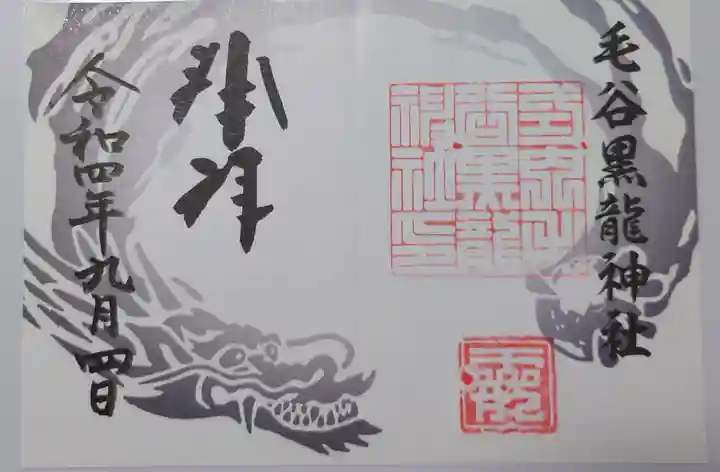 毛谷黒龍神社
奉拝
令和四年九月四日